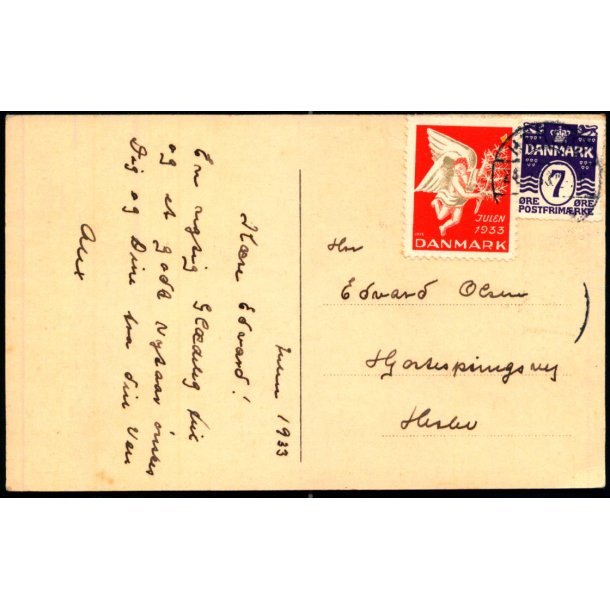 Julen 1933
Kære Edvard!
En rigtig Glædelig Jul
og et godt Nytaar ønskes
Dig og Dine fra din Ven
JULEN
1933
DANMARK
DANMARK
7
ØRE ØRE
POSTFRIMÆRKE
Hr
Edvard Olsen
Hjortespringsvej
Herlev